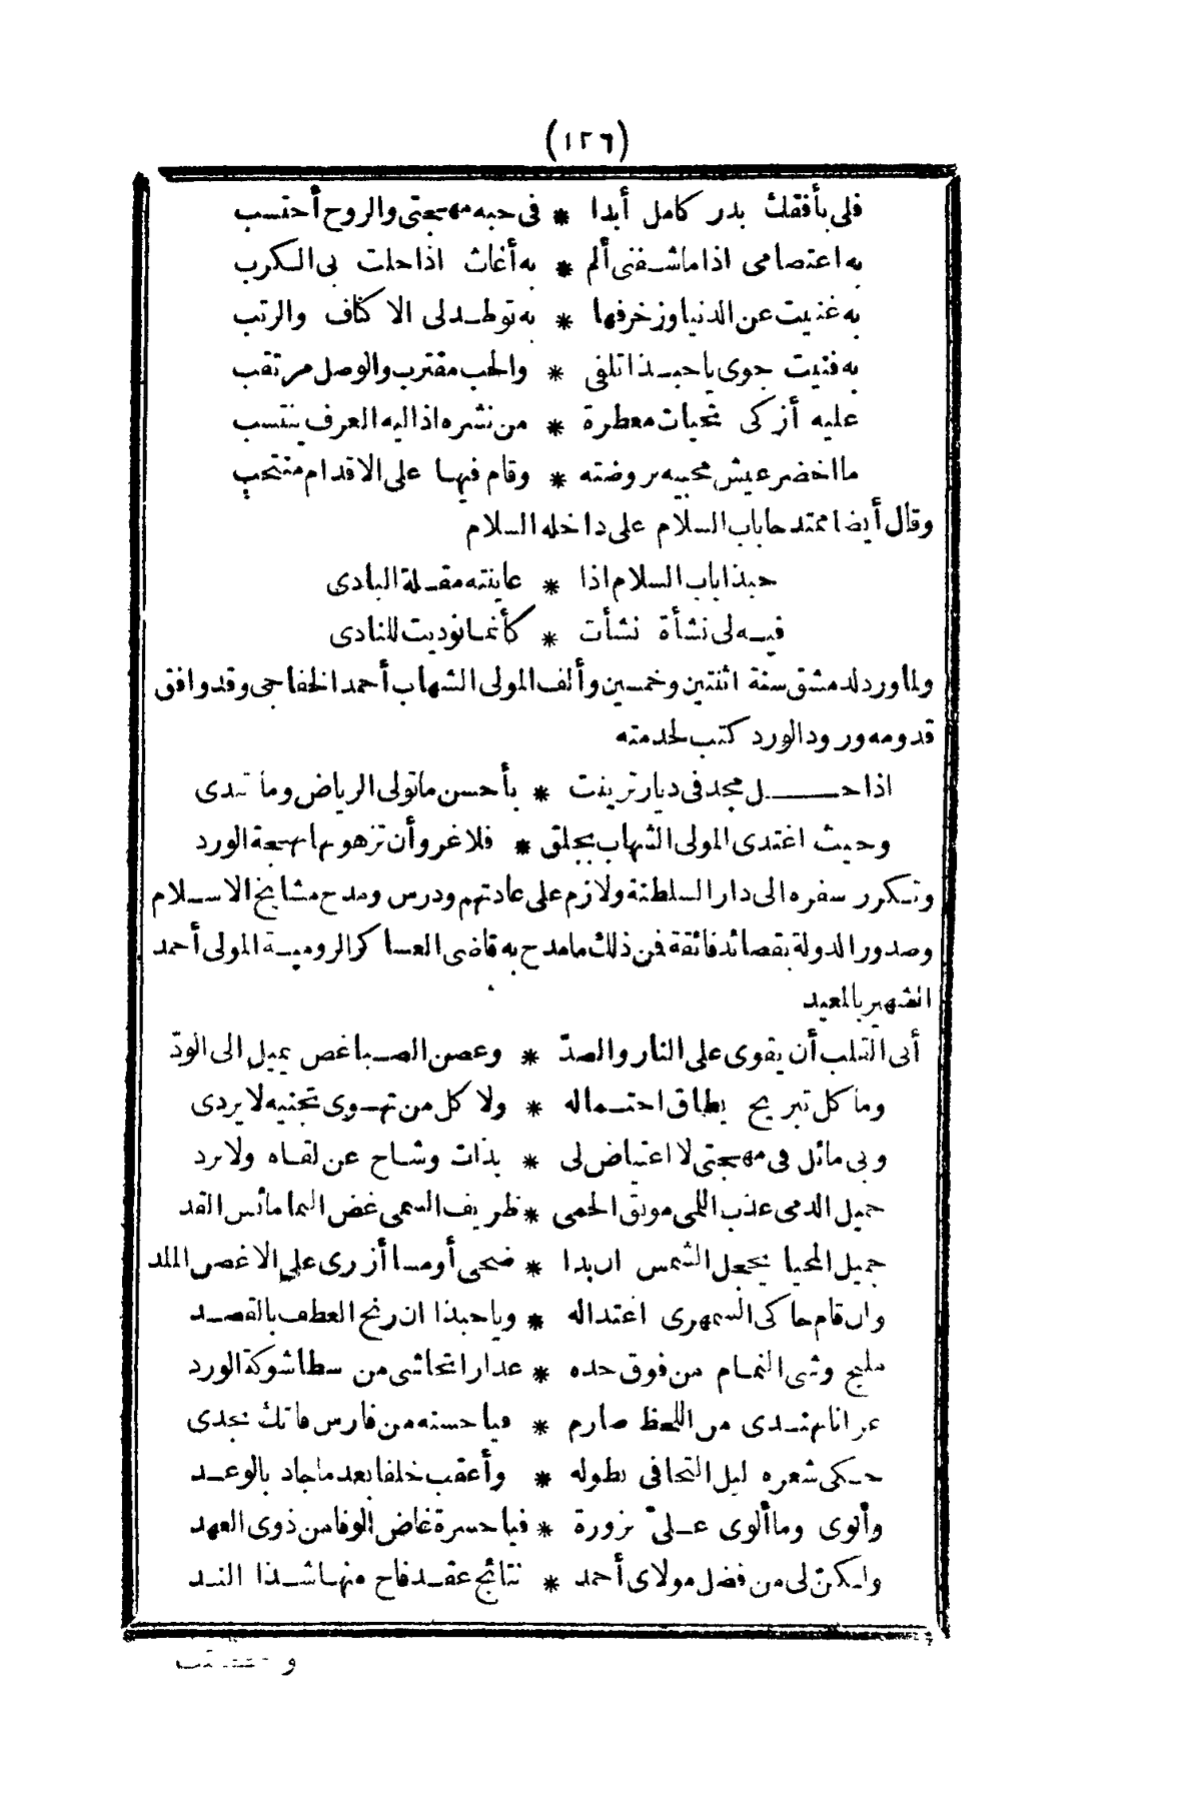 (١٢٦)
فلى بأفقك بدر كامل أبدا * فى حبه مهجتى والروح أحتسب
به اعتصامى اذا ماشفنى ألم * به أغاث اذا حلت بى الكرب
به غنيت عن الدنيا وزخرفها * به توطدلى الاكناف والرتب
به فنيت جوى يا حبذا تلفى * والحب مقترب والوصل مرتقب
عليه أزكى تحيات معطرة * من نشره اذا اليه العرف ينتسب
ما اخضر عيش محبيه بروضته * وقام فيها على الاقدام منتحب
وقال أيضا ممتدحا باب السلام على داخله السلام
حبذا باب السلام اذا * عاينته مقلة البادى
فيه لى نشأة نشأت * كأنما نوديت للنادى
ولما ورد لدمشق سنة اثنتين وخمسين وألف المولى الشهاب أحمد الخفاجى وقد وافق
قدومه ورود الورد كتب لخدمته
اذا حل مجد فى ديار تزينت * بأحسن ما تولى الرياض وما تبدى
وحيث اغتدى المولى الشهاب بجلق * فلا غرو أن تزهو بها بهجة الورد
وتكرر سفره الى دار السلطنة ولازم على عادتهم ودرس ومدح مشايخ الاسلام
وصدور الدولة بقصائد فائقة فمن ذلك ما مدح به قاضى العساكر الرومية المولى أحمد
الشهير بالمعيد
أبى القلب أن يقوى على النار والصدّ * وغصن الصبا غض يميل الى الودّ
وما كل تبريح يطاق احتماله * ولا كل من تهوى تجنيه لا يردى
وبى مائل فى مهجتى لا اعتياض لى * بذات وشاح عن لقاه ولا برد
جميل الدمى عذب اللمى مونق الحمى * ظريف السمى غض النما مائس القد
جميل المحيا يخجل الشمس ان بدا * ضحى أو مسا أزرى على الاغصن الملد
وان قام حاكى السمهرى اعتداله * ويا حبذا ان رنح العطف بالقصد
مليح وشى النمام من فوق خده * عذارا تحاشى من سطا شوكة الورد
غزانا بهندى من اللحظ صارم * فيا حسنه من فارس فاتك نجدى
حكى شعره ليل التجافى بطوله * وأعقب خلفا بعد ما جاد بالوعد
وألوى وما ألوى علىّ بزورة * فيا حسرة غاض الوفا من ذوى العهد
ولكنّ لى من فضل مولاى أحمد * نتائج عقد فاح منها شذا الند